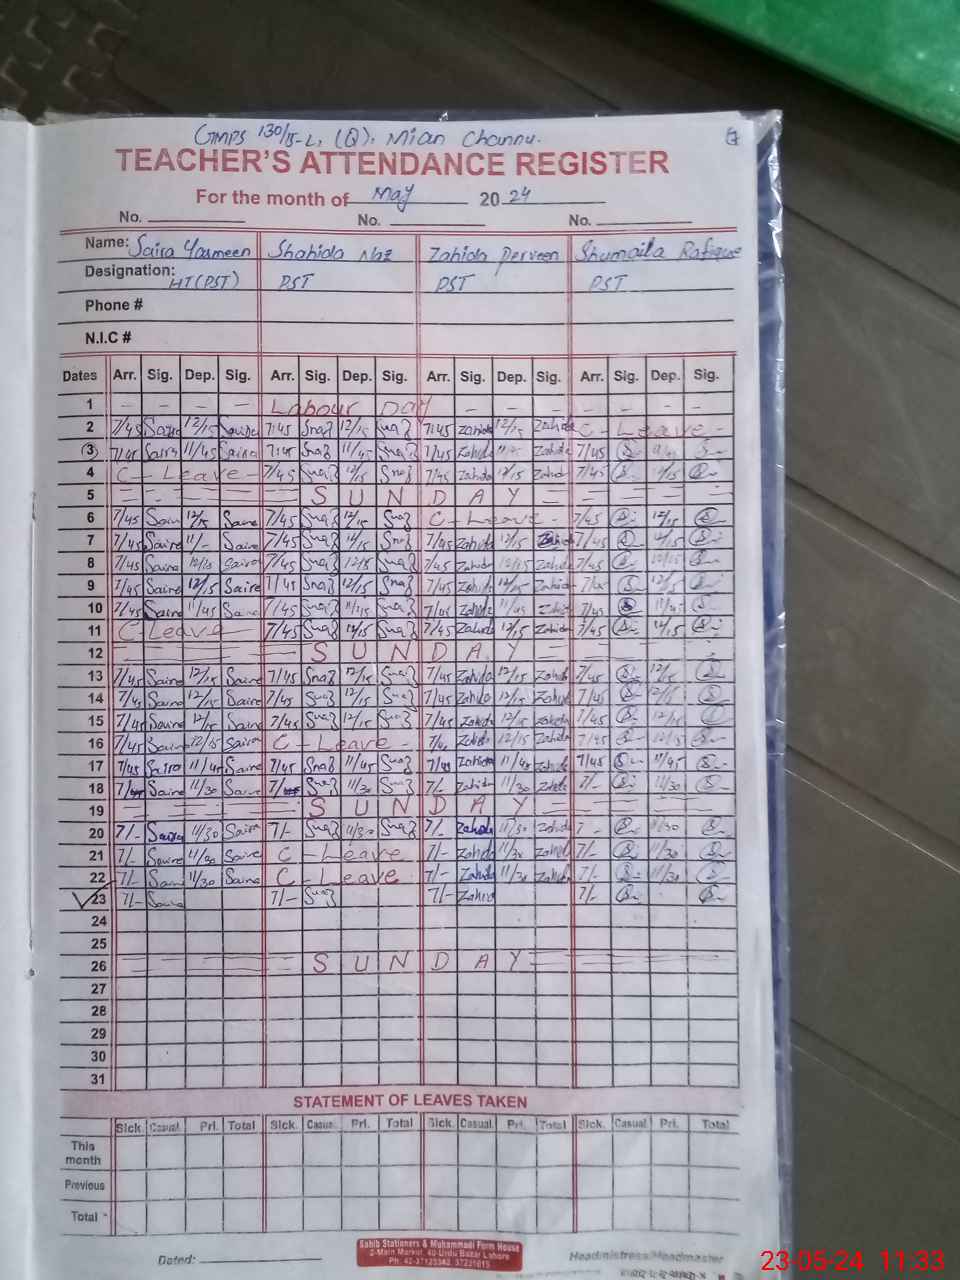 GMPS 130/15-L, (Q). Mian Channu.
TEACHER'S ATTENDANCE REGISTER
For the month of May 2024
No. No. No.
Name: Saira Yasmeen Shahida Naz Zahida Perveen Shumaila Rafique
Designation: HT(PST) PST PST PST
Phone #
N.I.C #
Dates Arr. Sig. Dep. Sig. Arr. Sig. Dep. Sig. Arr. Sig. Dep. Sig. Arr. Sig. Dep. Sig.
1 - - - - Labour Day - - - - -
2 7/45 Saira 12/15 Saira 7:45 Snaz 12/15 Snaz 7:45 Zahida 12/15 Zahida C - Leave -
3 7/45 Saira 11/45 Saira 7:45 Snaz 11/45 Snaz 7/45 Zahida Zahida 7/45
4 C - Leave - 7/45 Snaz 12/15 Snaz 7/45 Zahida 12/15 Zahid 7/45 12/15
5 SUNDAY
6 7/45 Saira 12/15 Saira 7/45 Snaz 12/15 Snaz C - Leave - 7/45 12/15
7 7/45 Saira Saira 7/45 Snaz 12/15 Snaz 7/45 Zahida 12/15 Zahida 7/45 12/15
8 7/45 Saira 12/15 Saira 7/45 Snaz 12/15 Snaz 7/45 Zahida 12/15 Zahida 7/45 12/15
9 7/45 Saira 12/15 Saira 7/45 Snaz 12/15 Snaz 7/45 Zahida 12/15 Zahida 12/15
10 7/45 Saira 11/45 Saira 7/45 Snaz Snaz 7/45 Zahida 11/45 Zahida 7/45 11/45
11 C - Leave 7/45 Snaz 12/15 Snaz 7/45 Zahida 12/15 Zahida 7/45 12/15
12 SUNDAY
13 7/45 Saira 12/15 Saira 7/45 Snaz 12/15 Snaz 7/45 Zahida 12/15 Zahida 7/45 12/15
14 7/45 Saira 12/15 Saira 7/45 Snaz 12/15 Snaz 7/45 Zahida 12/15 Zahida 7/45 12/15
15 7/45 Saira 12/15 Saira 7/45 Snaz 12/15 Snaz 7/45 Zahida 12/15 Zahida 7/45 12/15
16 7/45 Saira 12/15 Saira C - Leave - Zahida 12/15 Zahida 7/45 12/15
17 7/45 Saira 11/45 Saira 7/45 Snaz 11/45 Snaz 7/45 Zahida 11/45 Zahida 7/45 11/45
18 Saira 11/30 Saira Snaz 11/30 Snaz 7/- Zahida 11/30 Zahida 7/- 11/30
19 SUNDAY
20 7/- Saira 11/30 Saira 7/- Snaz 11/30 Snaz 7/- Zahida 11/30 Zahida 11/30
21 7/- Saira 11/30 Saira C - Leave 7/- Zahida 11/30 Zahida 7/- 11/30
22 7/- Saira 11/30 Saira C - Leave 7/- Zahida 11/30 Zahida 7/- 11/30
23 7/- Saira 7/- Snaz 7/- Zahida 7/-
24
25
26 SUNDAY
27
28
29
30
31
STATEMENT OF LEAVES TAKEN
Sick. Casual. Pri. Total Sick. Casual. Pri. Total Sick. Casual. Pri. Total Sick. Casual. Pri. Total
This month
Previous
Total
Dated:
Sahib Stationers & Muhammadi Form House
2-Main Market, 40-Urdu Bazar Lahore
Headmistress/Headmaster
23-05-24 11:33